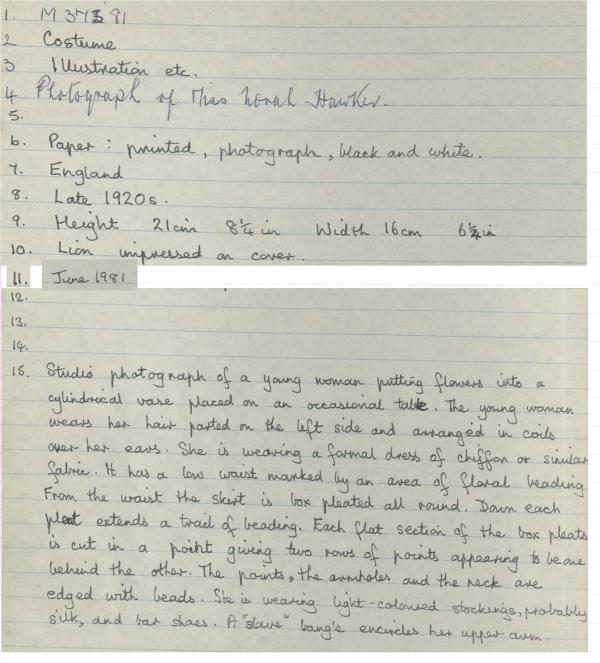 1. M 375 81
2 Costume
3 Illustration etc.
4 Photograph of Miss Norah Hawker.
5.
6. Paper : printed, photograph, black and white.
7. England
8. Late 1920s.
9. Height 21cm 8¼ in Width 16cm 6¼ in
10. Lion impressed on cover.
11. June 1981
12.
13.
14.
15. Studio photograph of a young woman putting flowers into a
cylindrical vase placed on an occasional table. The young woman
wears her hair parted on the left side and arranged in coils
over her ears. She is wearing a formal dress of chiffon or similar
fabric. It has a low waist marked by an area of floral beading
From the waist the skirt is box pleated all round. Down each
pleat extends a trail of beading. Each flat section of the box pleats
is cut in a point giving two rows of points appearing to be one
behind the other. The points, the armholes and the neck are
edged with beads. She is wearing light-coloured stockings, probably
silk, and bar shoes. A "slave" bangle encircles her upper arm.